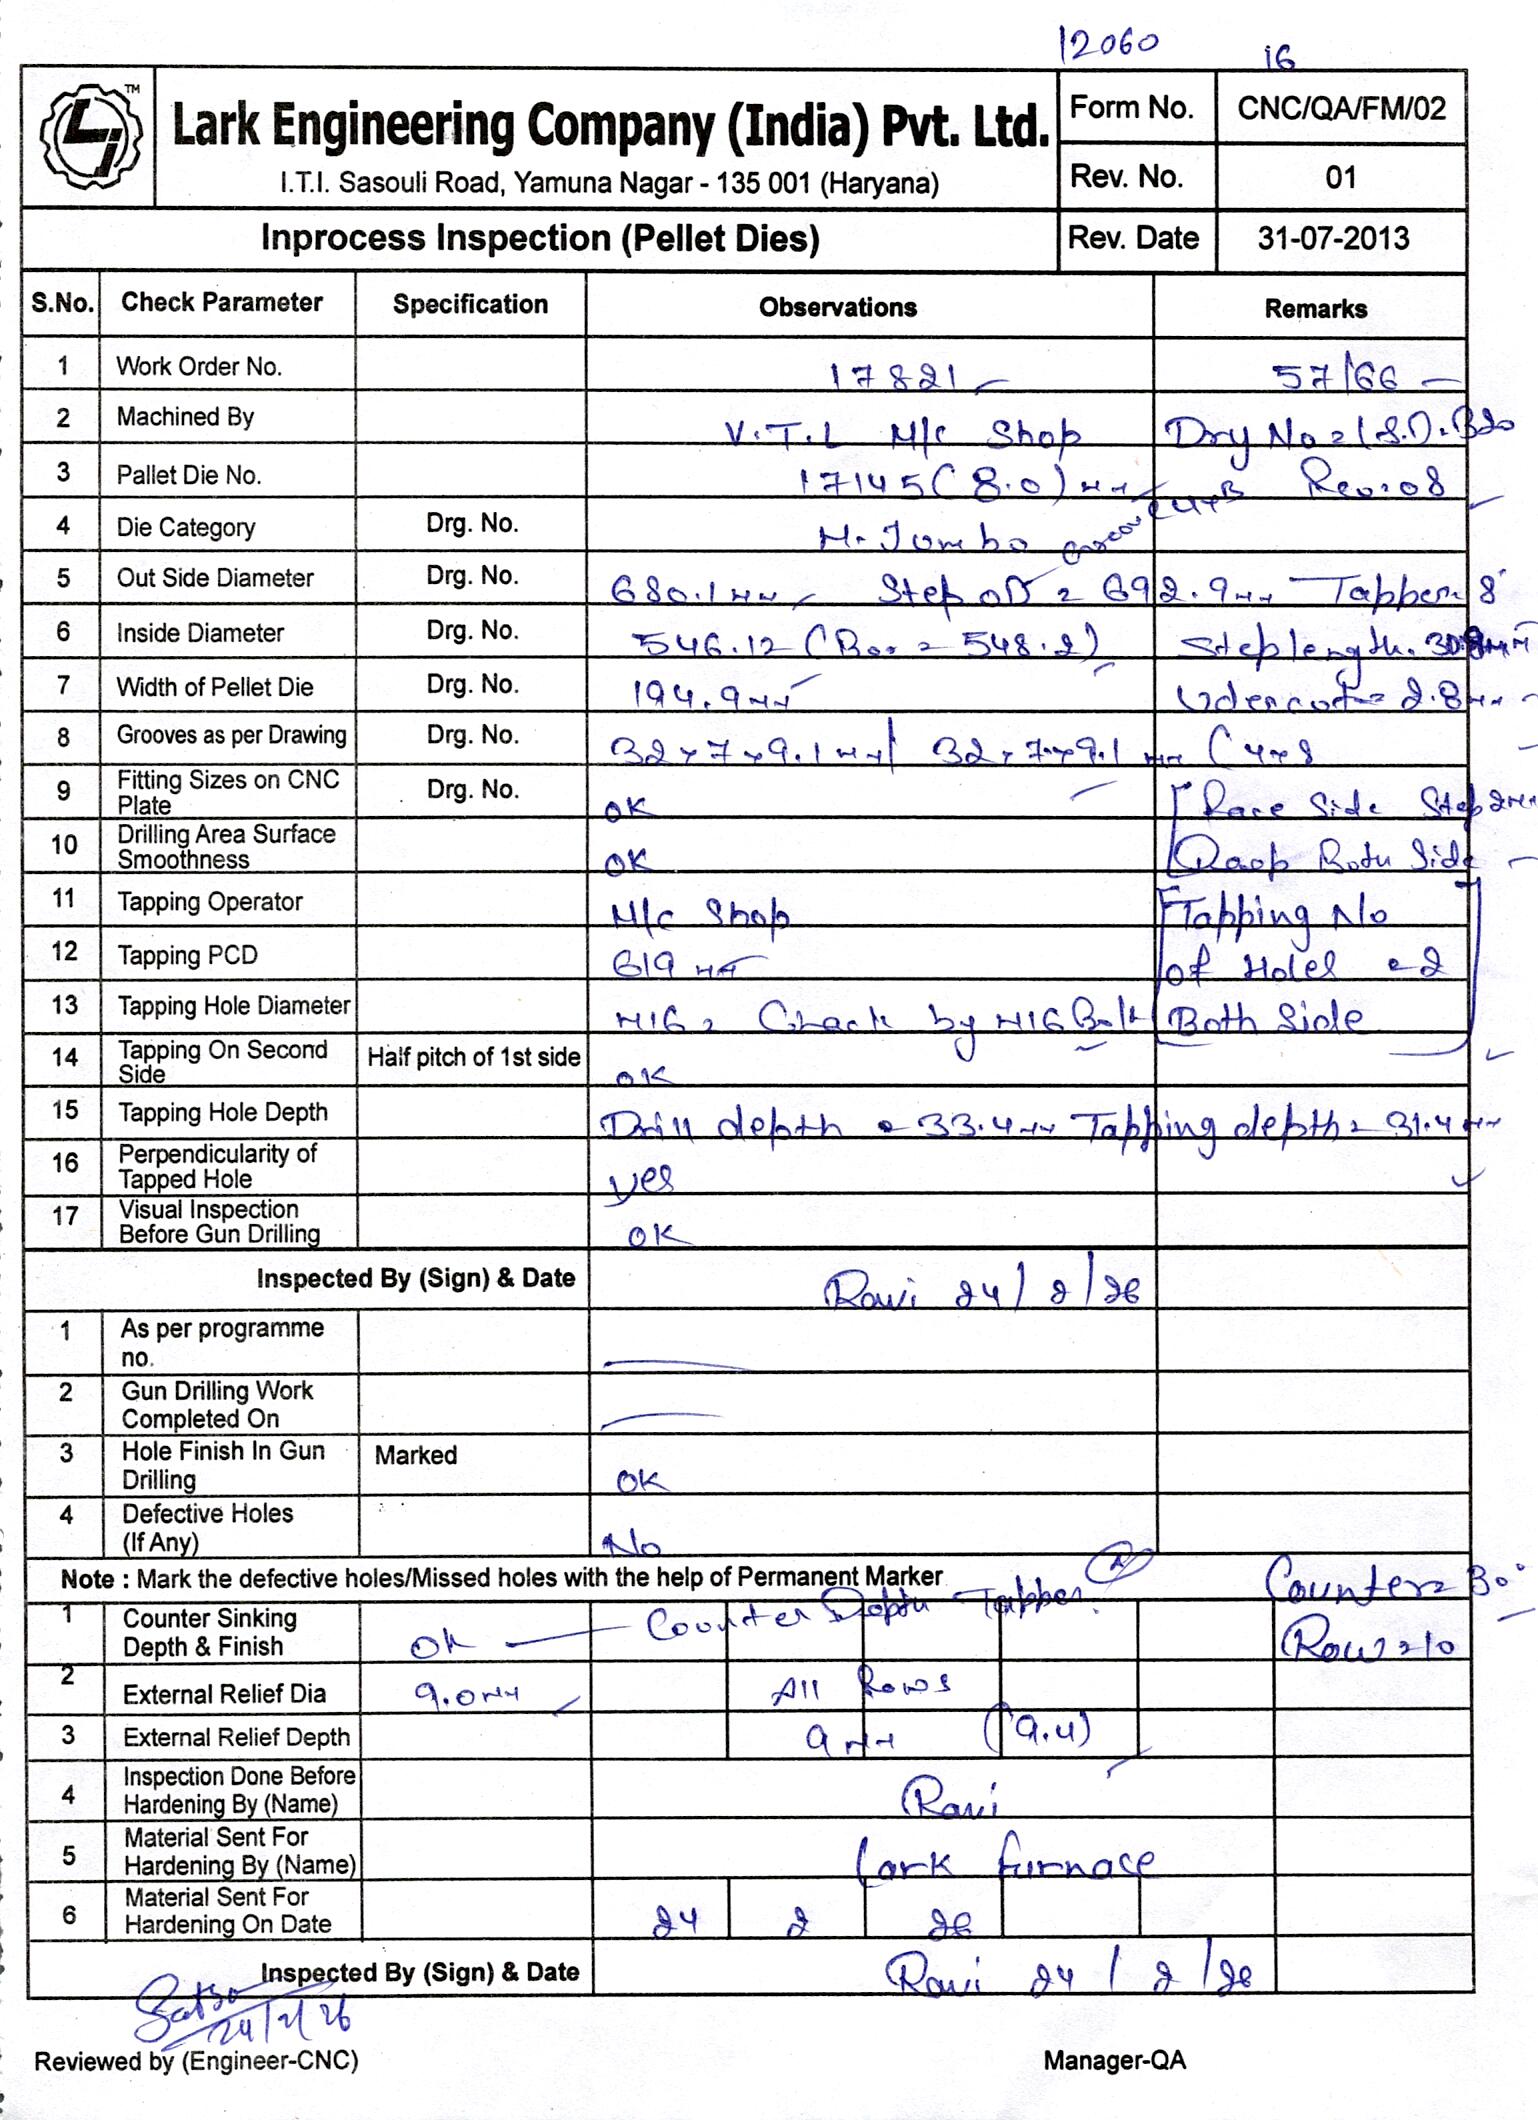 12060 16
TM
Lark Engineering Company (India) Pvt. Ltd.
I.T.I. Sasouli Road, Yamuna Nagar - 135 001 (Haryana)
Form No. CNC/QA/FM/02
Rev. No. 01
Inprocess Inspection (Pellet Dies) Rev. Date 31-07-2013
S.No. Check Parameter Specification Observations Remarks
1 Work Order No. 17821 57/66
2 Machined By V.T.L M/c Shop
3 Pallet Die No. 17145 (8.0) Rev:08
4 Die Category Drg. No. M. Jumbo
5 Out Side Diameter Drg. No. 680.1mm Step OD = 692.9mm Tapper 8°
6 Inside Diameter Drg. No. 546.12 = 548.2) Step length.
7 Width of Pellet Die Drg. No. 194.9mm = 2.8mm
8 Grooves as per Drawing Drg. No. 32x7x9.1mm / 32x7x9.1mm (4x8
9 Fitting Sizes on CNC Plate Drg. No. OK Side Step 2mm
10 Drilling Area Surface Smoothness OK Both Side
11 Tapping Operator M/c Shop Tapping No
12 Tapping PCD 619 mm of Holes = 2
13 Tapping Hole Diameter M16 = Chack by M16 Bolt Both Side
14 Tapping On Second Side Half pitch of 1st side OK
15 Tapping Hole Depth Drill depth = 33.4mm Tapping depth = 31.4mm
16 Perpendicularity of Tapped Hole yes
17 Visual Inspection Before Gun Drilling OK
Inspected By (Sign) & Date Ravi 24/2/26
1 As per programme no.
2 Gun Drilling Work Completed On
3 Hole Finish In Gun Drilling Marked OK
4 Defective Holes (If Any) No
Note : Mark the defective holes/Missed holes with the help of Permanent Marker
1 Counter Sinking Depth & Finish OK Counter Depth Tapper Counter = 30° Row = 10
2 External Relief Dia 9.0mm All Rows
3 External Relief Depth 9mm (9.4)
4 Inspection Done Before Hardening By (Name) Ravi
5 Material Sent For Hardening By (Name) Lark furnace
6 Material Sent For Hardening On Date 24 2 26
Inspected By (Sign) & Date Ravi 24/2/26
24/2/26
Reviewed by (Engineer-CNC) Manager-QA